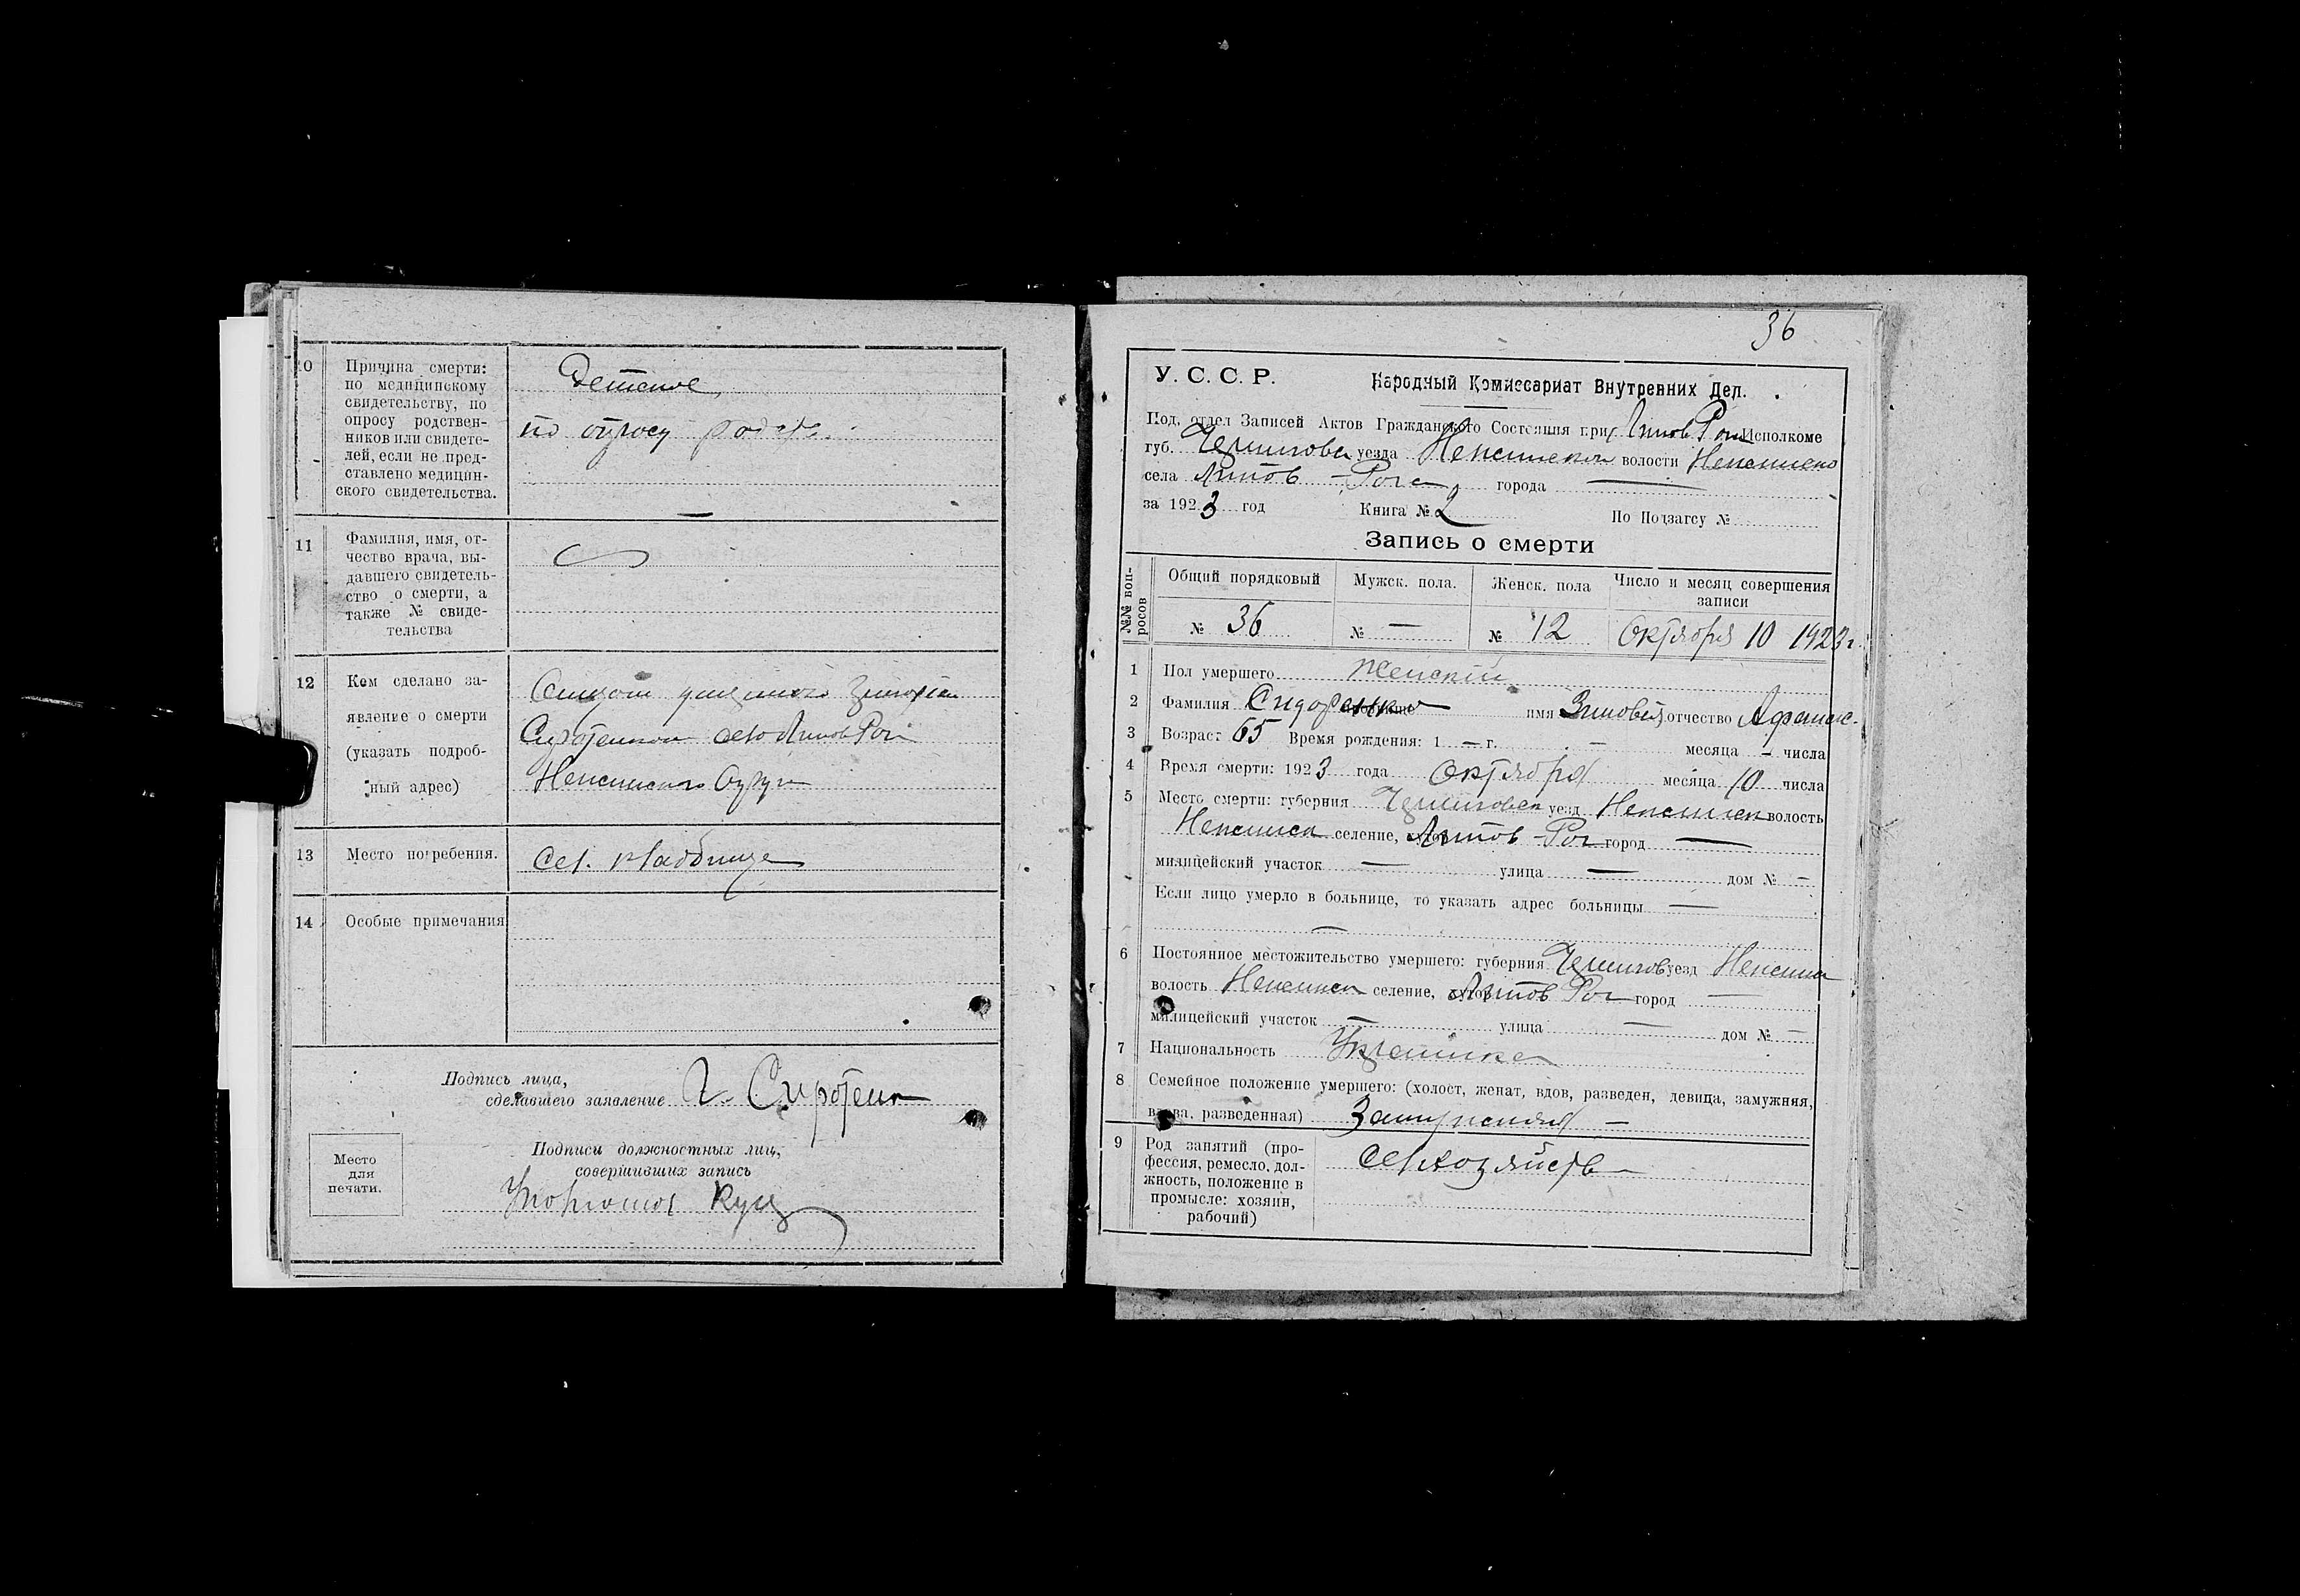 10 Причина смерти:
по медицинскому
свидетельству, по
опросу родствен-
ников или свидете-
лей, если не пред-
ставлено медицин-
ского свидетельства.
Детские
по опросу родств.
11 Фамилия, имя, от-
чество врача, вы-
давшего свидетель-
ство о смерти, а
также № свиде-
тельства
12 Кем сделано за-
явление о смерти
(указать подроб-
ный адрес)
Григорием
Сиротенком село Липов Рог
Неженского Округа
13 Место погребения. Сел. кладбище
14 Особые примечания
Подпись лица,
сделавшего заявление Г. Сиротенк
Подписи должностных лиц,
совершивших запись
Место
для
печати.
Уполномоч Куц
36
У. С. С. Р. Народный Комиссариат Внутренних Дел.
Под. отдел Записей Актов Гражданского Состояния при Липов Рог Исполкоме
губ. Чернигов уезда Неженской волости Неженско
села Липов-Рога города —
за 1923 год Книга № 2 По Подзагсу №
Запись о смерти
№№ воп-
росов
Общий порядковый Мужск. пола. Женск. пола Число и месяц совершения
записи
№ 36 № — № 12 Октября 10 1923 г.
1 Пол умершего Женский
2 Фамилия Сидоренко имя Зиновия отчество Афанас.
3 Возраст 65 Время рождения: 1 — г. — месяца — числа
4 Время смерти: 1923 года Октября месяца 10 числа
5 Место смерти: губерния Черниговск уезд Неженск волость
Неженск селение, Липов-Рог город —
милицейский участок — улица — дом № —
Если лицо умерло в больнице, то указать адрес больницы —
—
6 Постоянное местожительство умершего: губерния Чернигов уезд Неженск
волость Неженск селение, Липов Рог город —
милицейский участок — улица — дом № —
7 Национальность Украинка
8 Семейное положение умершего: (холост, женат, вдов, разведен, девица, замужняя,
вдова, разведенная) Замужняя —
9 Род занятий (про-
фессия, ремесло, дол-
жность, положение в
промысле: хозяин,
рабочий)
Сел хозяйств